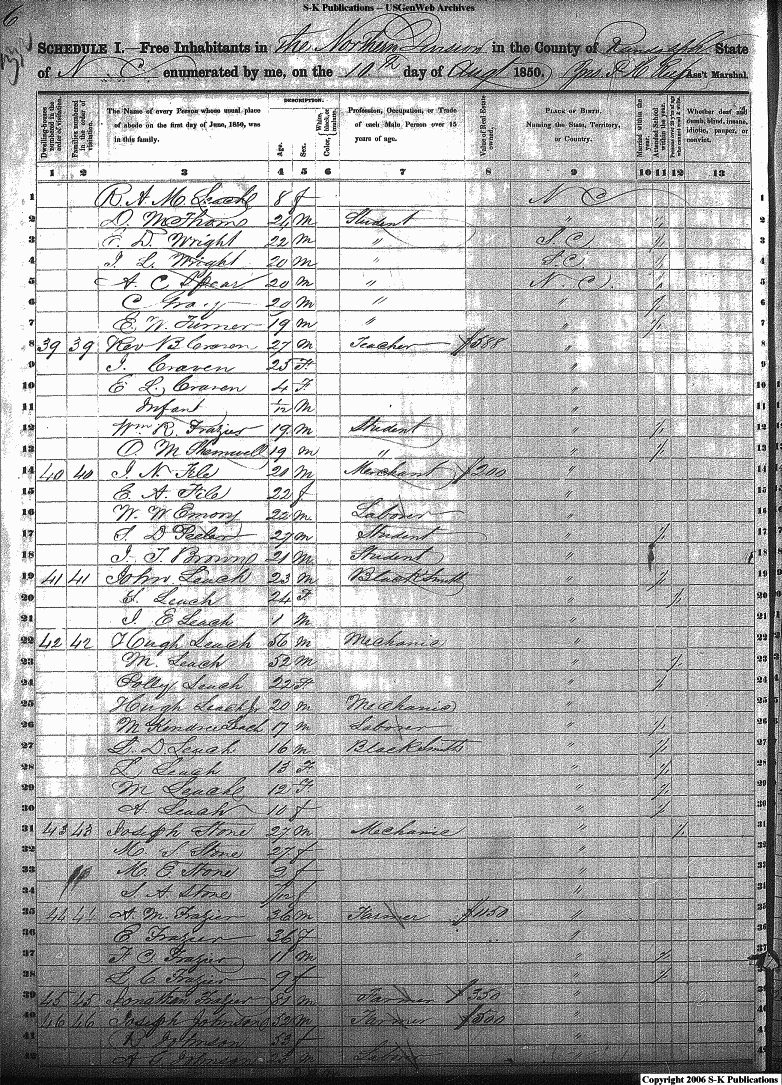 S-K Publications -- USGenWeb Archives
6
SCHEDULE I.—Free Inhabitants in the Northern Division in the County of Randolph State
of N C enumerated by me, on the 10th day of Augt 1850. Ass't Marshal.
Dwelling-houses numbered in the order of visitation.
Families numbered in the order of visitation.
The Name of every Person whose usual place of abode on the first day of June, 1850, was in this family.
DESCRIPTION.
Age.
Sex.
White, black, or mulatto.
Color,
Profession, Occupation, or Trade of each Male Person over 15 years of age.
Value of Real Estate owned.
PLACE OF BIRTH.
Naming the State, Territory, or Country.
Married within the year.
Attended School within the year.
Whether deaf and dumb, blind, insane, idiotic, pauper, or convict.
1 2 3 4 5 6 7 8 9 10 11 12 13
1 R. A. M. Leach 8 f N C 1
2 24 m Student " / 2
3 D. Wright 22 m " S. C / 3
4 J. L. Wright 20 m " S. C / 4
5 A. C. Spear 20 m " N. C. / 5
6 C Gray 20 m " " / 6
7 E. W. Turner 19 m " " / 7
8 39 39 Rev B. Craven 27 m Teacher $588 " 8
9 I. Craven 25 F " 9
10 E L. Craven 4 F " 10
11 Infant 1/12 M " 11
12 Wm R. Frazier 19 m Student " / 12
13 O. M. 19 m " " / 13
14 40 40 J. N. File 21 m Merchant $200 " 14
15 E. A. File 22 f " 15
16 W. W Emory 22 m Laborer " 16
17 S. D Peeler 27 m Student " / 17
18 J. T. Brown 21 m Student " 18
19 41 41 John Leach 23 m BlackSmith " / 19
20 Leach 24 F " / 20
21 J. E Leach 1 M " 21
22 42 42 Hugh Leach 56 m Mechanic " 22
23 M. Leach 52 m " / 23
24 Polly Leach 22 F " / 24
25 Hugh Leach 20 m Mechanic " 25
26 M Kendree Leach 17 m Laborer " / 26
27 D Leach 16 m BlackSmith " / 27
28 L Leach 13 F " / 28
29 M Leach 12 F " / 29
30 A. Leach 10 f " / 30
31 43 43 Joseph Stone 27 m Mechanic " / 31
32 M. S Stone 27 f " 32
33 M. E Stone 9 f " 33
34 S. A. Stone f " 34
35 44 44 A. M. Frazier 36 m Farmer " 35
36 E Frazier 36 f " 36
37 F. C. Frazier 11 m " / 37
38 L. C. Frazier 9 f " / 38
39 45 45 Jonathan Frazier 81 m Farmer $350 " 39
40 46 46 Joseph Johnson 52 m Farmer $500 " 40
41 Johnson 53 f " 41
42 A C Johnson m " 42
Copyright 2006 S-K Publications